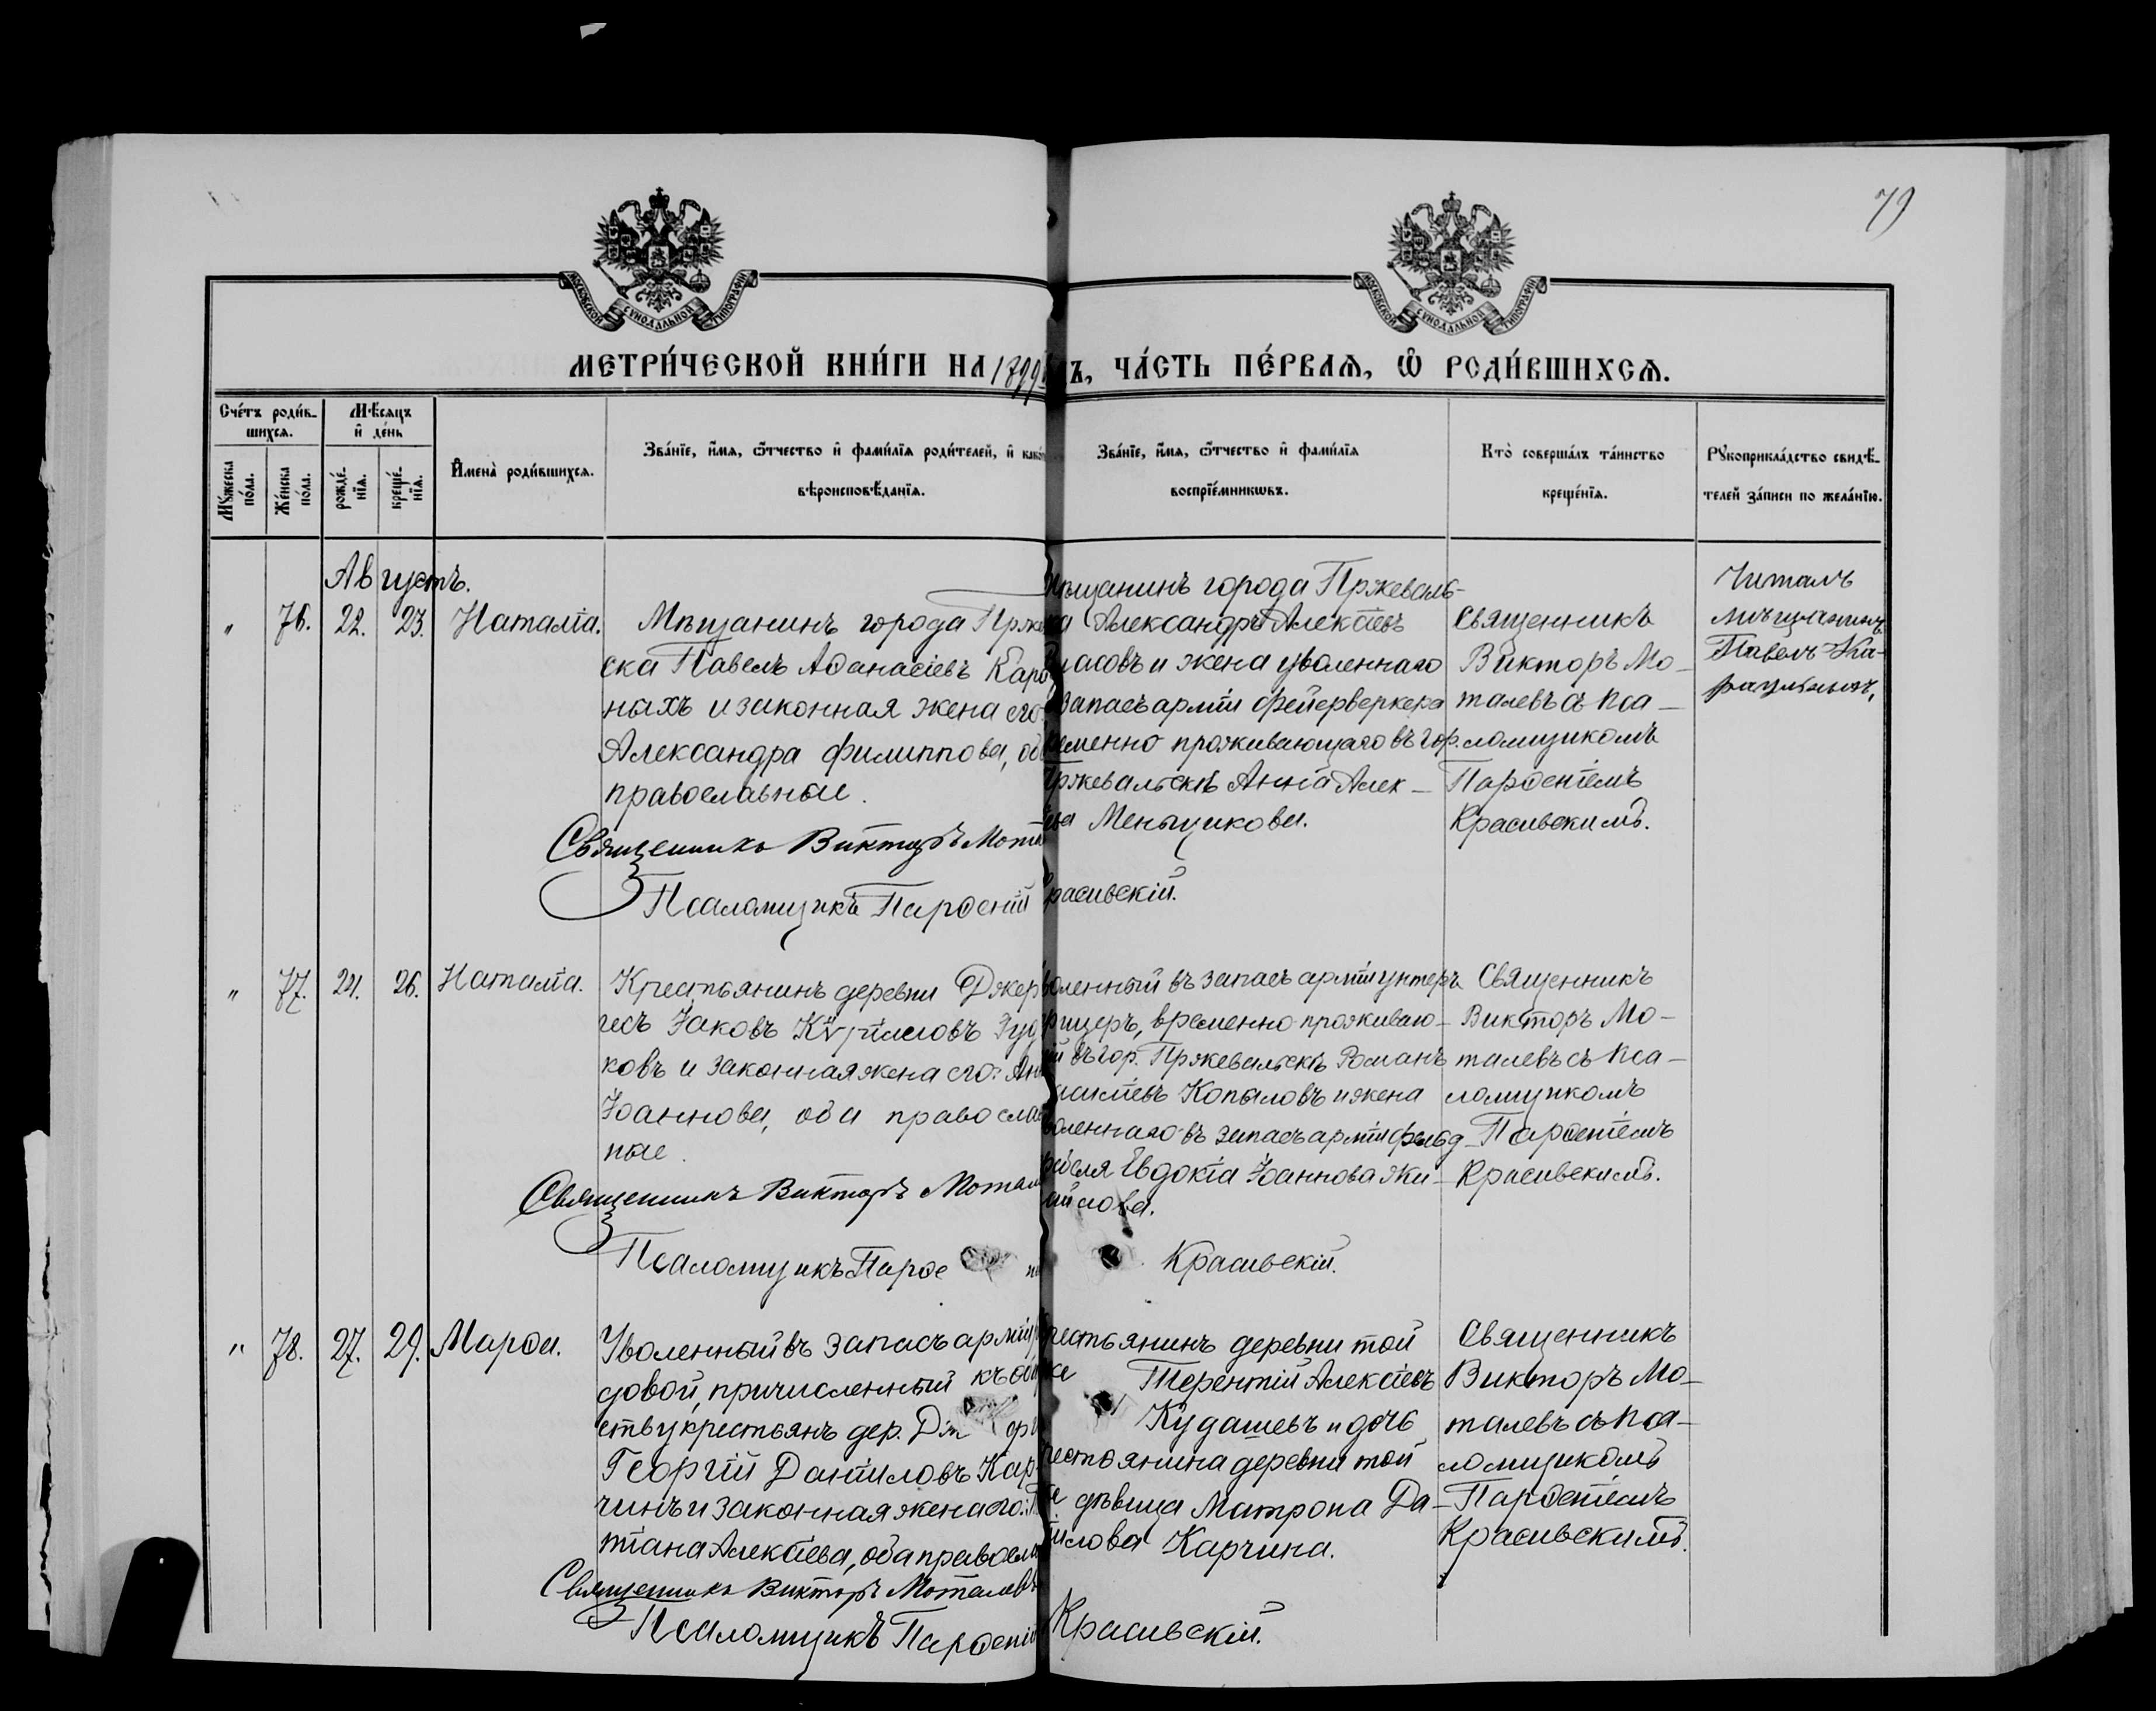 79
МОСКОВСКОЙ СѴНОДАЛЬНОЙ ТИПОГРАФІИ
МОСКОВСКОЙ СѴНОДАЛЬНОЙ ТИПОГРАФІИ
МЕТРИ́ЧЕСКОЙ КНИ́ГИ НА 1899 Ъ, ЧА́СТЬ ПЕ́РВАѦ, Ѡ҆ РОДИ́ВШИХСѦ.
Сче́тъ роди́в-
шихсѧ.
Мꙋ́жеска по́ла.
Же́нска по́ла.
Мѣ́сѧцъ
и҆ де́нь
рожде́-
нїѧ.
креще́-
нїѧ.
И҆мена̀ роди́вшихсѧ.
Зва́нїе, и҆́мѧ, ѻ҆́тчество и҆ фами́лїѧ роди́телей, и҆ како
вѣроисповѣ́данїѧ.
Зва́нїе, и҆́мѧ, ѻ҆́тчество и҆ фами́лїѧ
воспрїе́мникѡвъ.
Кто̀ соверша́лъ та́инство
креще́нїѧ.
Рꙋкоприкла́дство свидѣ́-
телей за́писи по жела́нїю.
Августъ.
" 76. 22. 23. Наталія.
Мѣщанинъ города Прже
ска Павелъ Аѳанасіевъ Кара
ныхъ и законная жена его
Александра Филиппова, об
православные.
Священникъ Викторъ Мота
Псаломщикъ Парѳеній
мѣщанинъ города Пржеваль-
ка Александръ Алексіевъ
ласовъ и жена уволеннаго
запасъ арміи фейерверкера
еменно проживающаго въ гор.
Пржевальскѣ Анна Алек-
ева Меньщикова.
расивскій.
Священникъ
Викторъ Мо-
талевъ съ пса-
ломщикомъ
Парѳеніемъ
Красивскимъ.
Читалъ
мѣщанинъ
Павелъ Ка-
раульныхъ.
" 77. 24. 26. Наталія.
Крестьянинъ деревни Джер
гесъ Іаковъ Кѵрилловъ
ковъ и законная жена его: Ан
Іоаннова, оба православ
ные.
Священникъ Викторъ Мотал
Псаломщикъ Парѳе
воленный въ запасъ арміи унтеръ
фицеръ, временно проживаю-
ій въ гор. Пржевальскѣ Романъ
Копыловъ и жена
воленнаго въ запасъ арміи фельд-
фебеля Евдокіа Іоаннова
Красивскій.
Священникъ
Викторъ Мо-
талевъ съ пса-
ломщикомъ
Парѳеніемъ
Красивскимъ.
" 78. 27. 29. Марѳа.
Уволенный въ запасъ арміи, р
довой, причисленный къ общ
ству крестьянъ дер.
Георгій Даніиловъ Кар
чинъ и законная жена его: Т
тіана Алексіева, оба правосла
Священникъ Викторъ Моталевъ
Псаломщикъ Парѳеній
рестьянинъ деревни той
же Терентій Алексіевъ
Кудашевъ и дочь
рестьянина деревни той
же дѣвица Матрона Да-
ніилова Карчина.
Красивскій.
Священникъ
Викторъ Мо-
талевъ съ пса-
ломщикомъ
Парѳеніемъ
Красивскимъ.